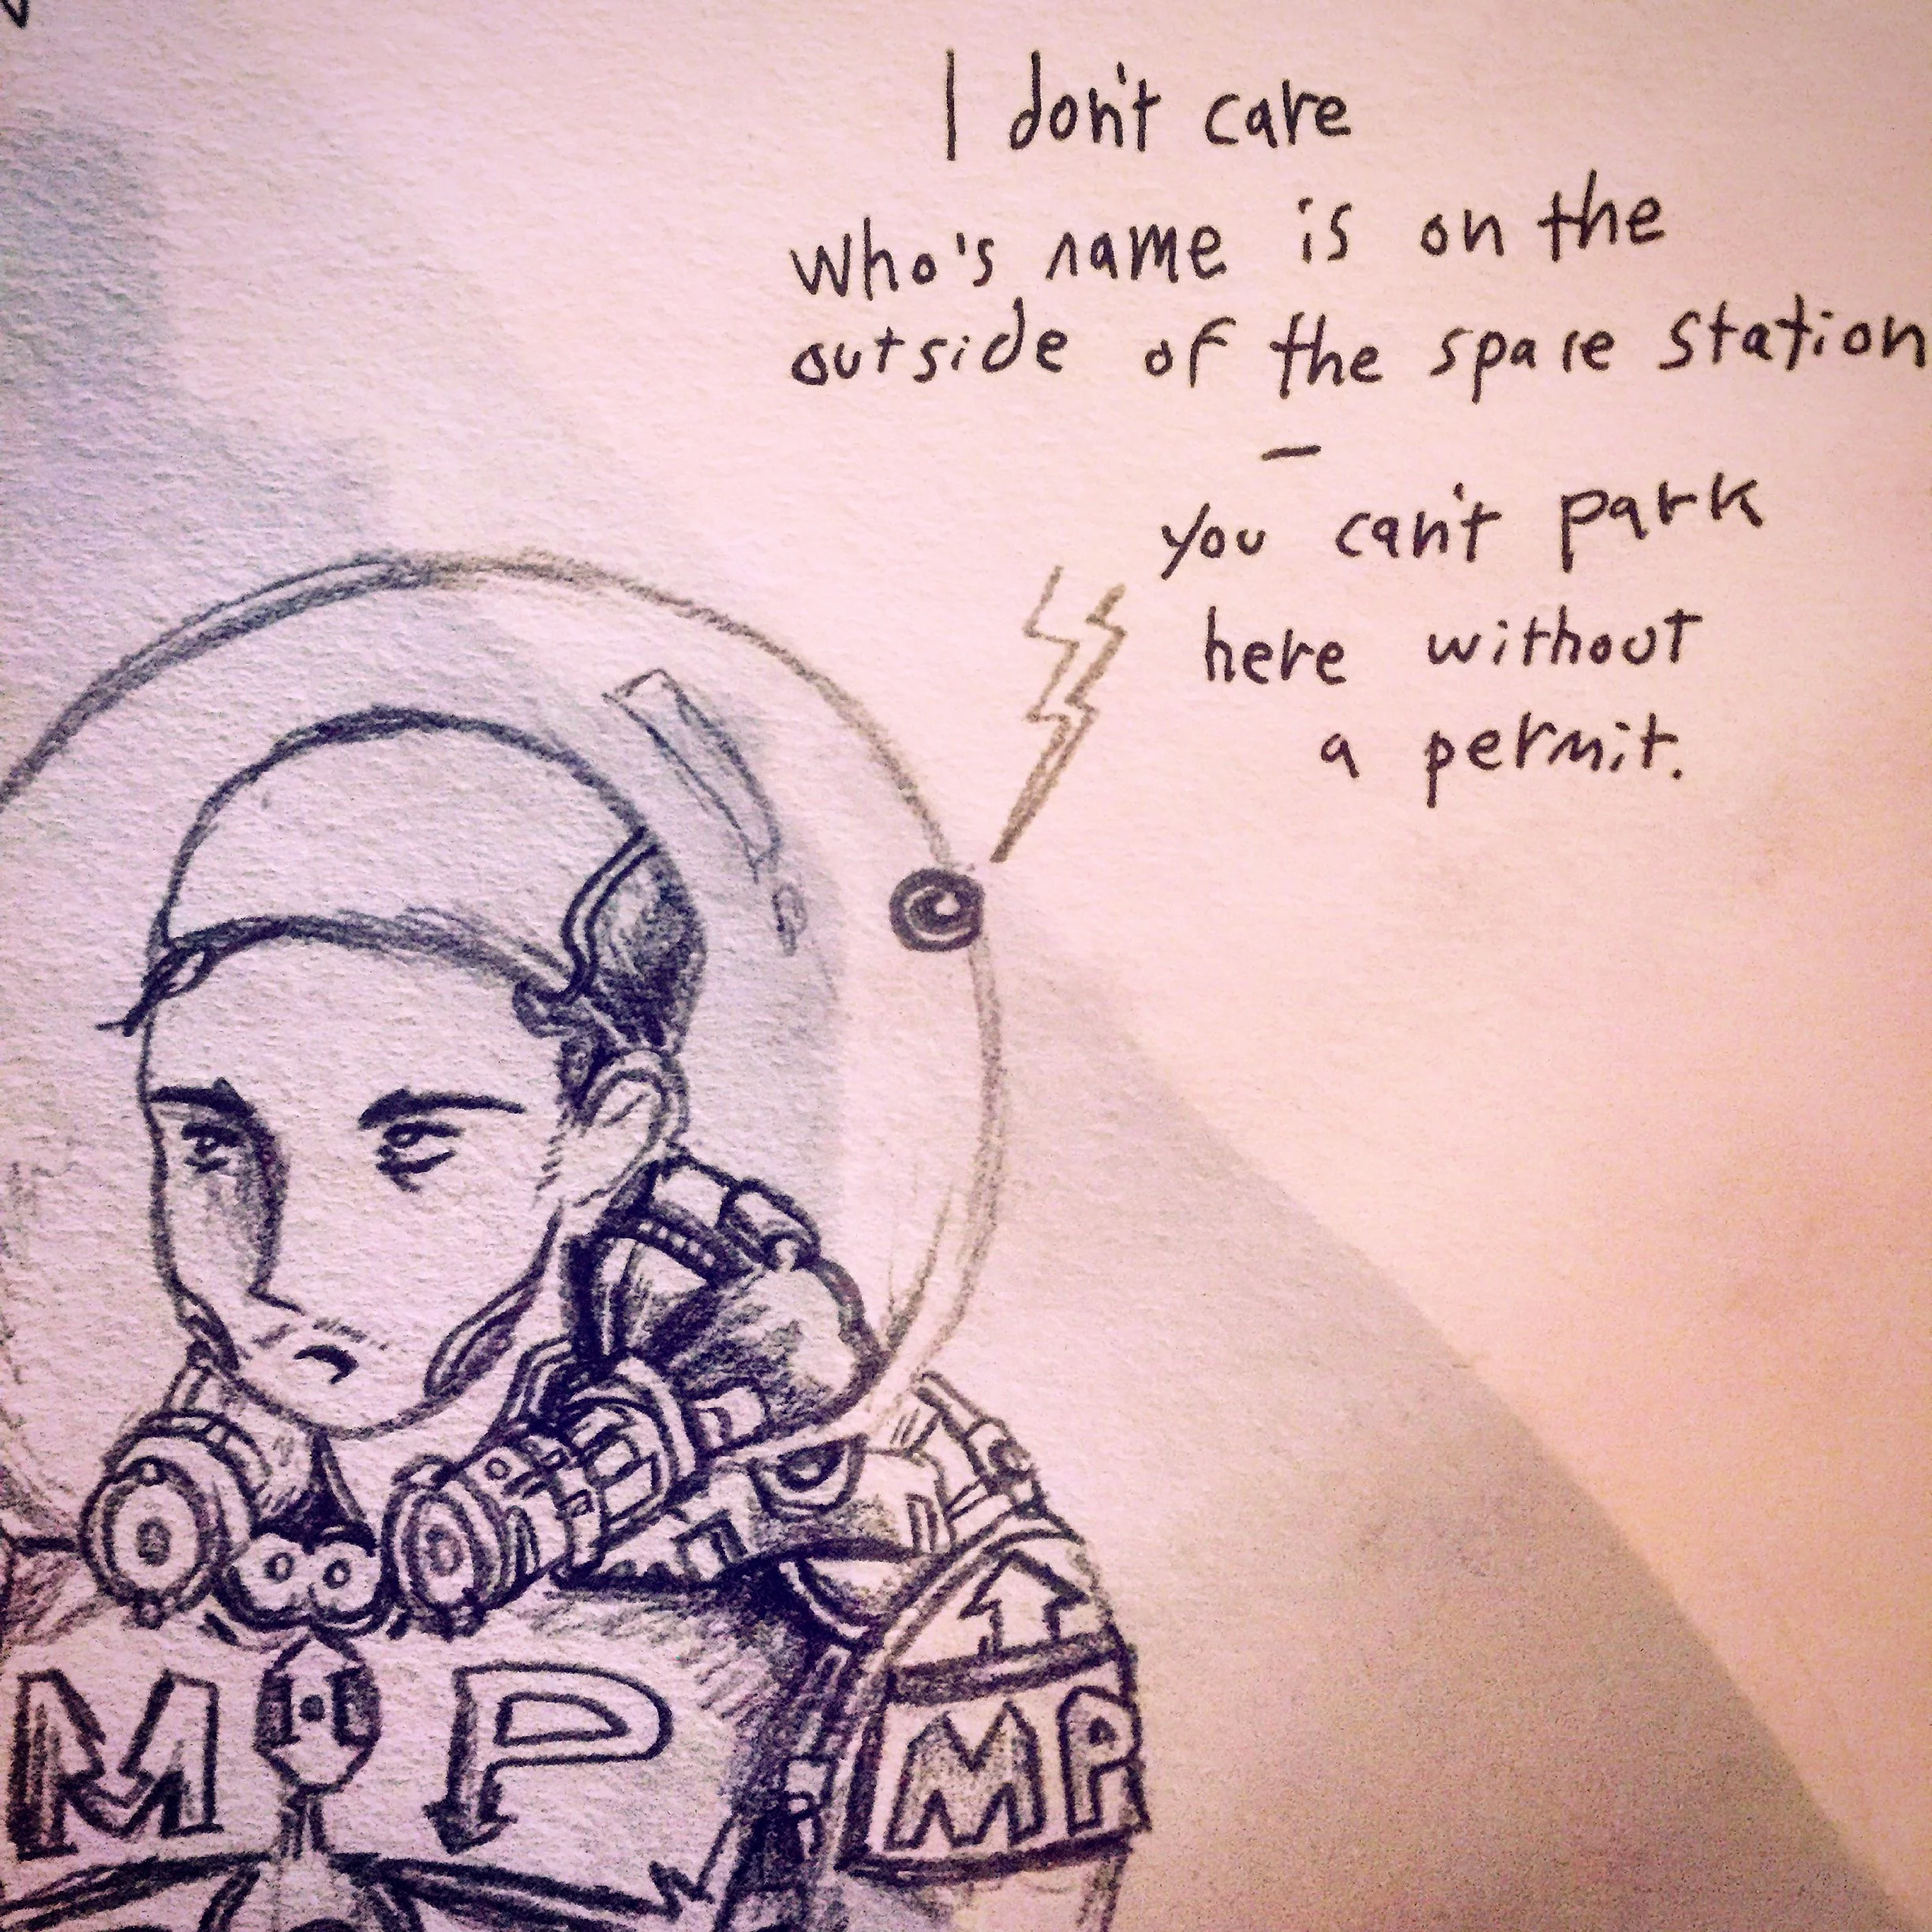 I don't care
who's name is on the
outside of the space station
—
you can't park
here without
a permit.
M P
MP